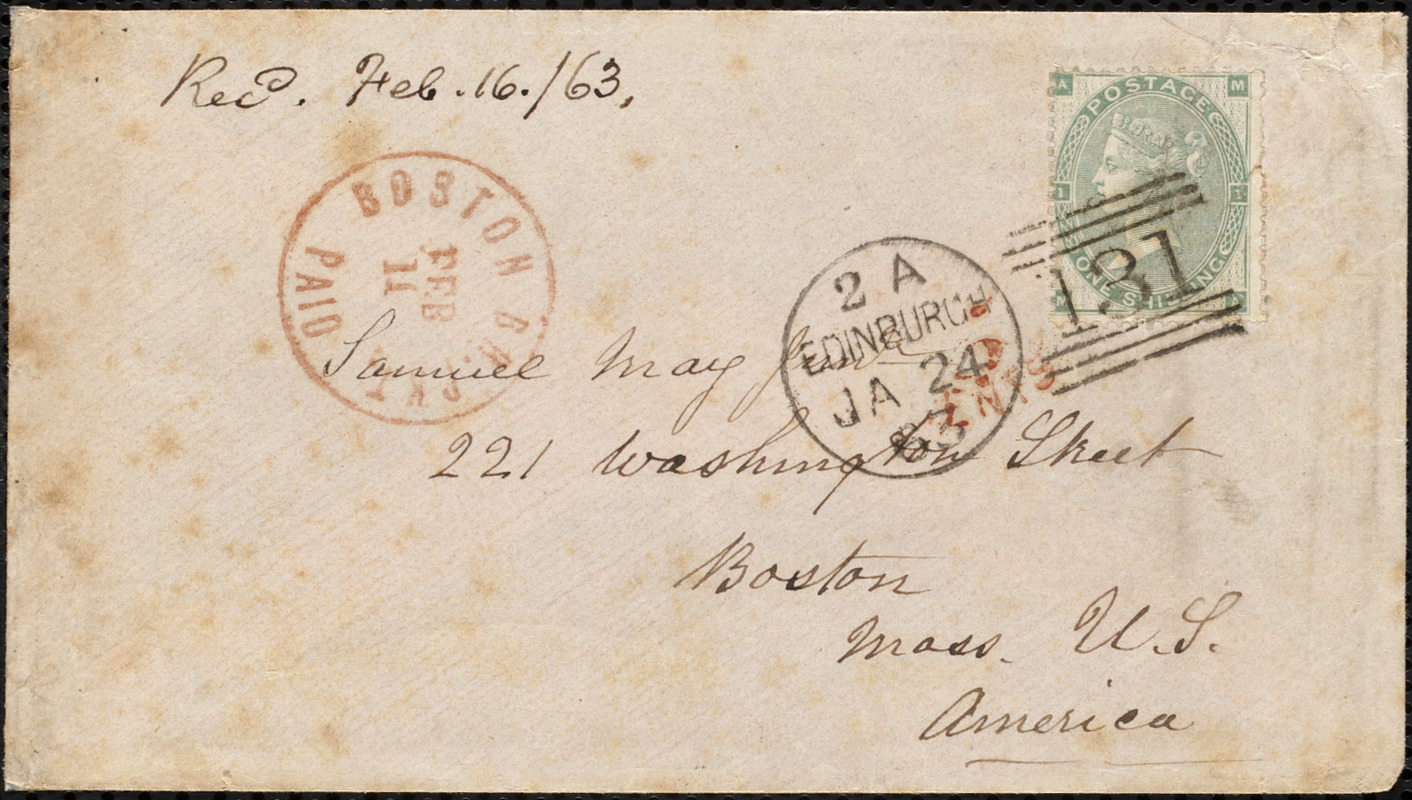 Recd. Feb. 16./63.
A M
POSTAGE
I I
ONE SHILLING
M A
131
BOSTON BR. PKT
FEB
11
PAID
2 A
EDINBURGH
JA 24
63
CENTS
Samuel May Junr
221 Washington Street
Boston
Mass. U.S.
America